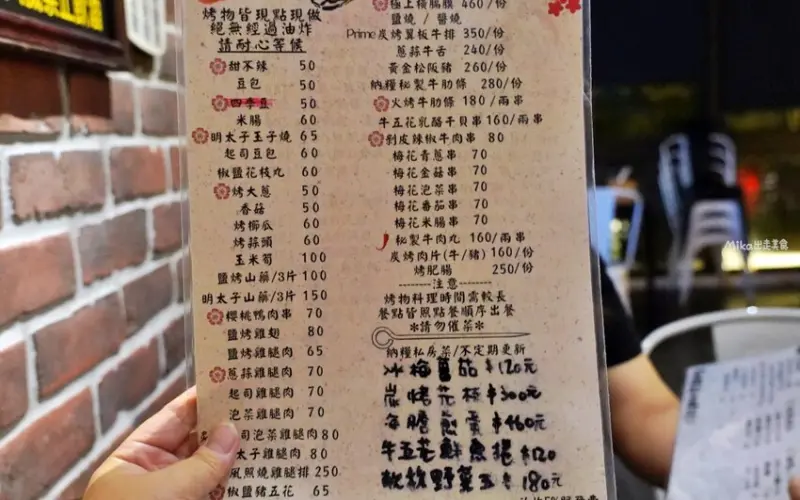 烤物皆現點現做
絕無經過油炸
請耐心等候
甜不辣 50
豆包 50
四季豆 50
米腸 60
明太子玉子燒 65
起司豆包 60
椒鹽花枝丸 60
烤大蔥 50
香菇 50
烤櫛瓜 60
烤蒜頭 60
玉米筍 100
鹽烤山藥/3片 100
明太子山藥/3片 150
櫻桃鴨肉串 70
鹽烤雞翅 80
鹽烤雞腿肉 65
蔥蒜雞腿肉 70
起司雞腿肉 70
泡菜雞腿肉 70
司泡菜雞腿肉 80
太子雞腿肉 80
風照燒雞腿排 250
椒鹽豬五花 65
極上橫膈膜 460/份
鹽燒 / 醬燒
Prime炭烤翼板牛排 350/份
蔥蒜牛舌 240/份
黃金松阪豬 260/份
納糧秘製牛肋條 280/份
火烤牛肋條 180/兩串
牛五花乳酪干貝串 160/兩串
剝皮辣椒牛肉串 80
梅花青蔥串 70
梅花金菇串 70
梅花泡菜串 70
梅花番茄串 70
梅花米腸串 70
秘製牛肉丸 160/兩串
炭烤肉片(牛/豬) 160/份
烤肥腸 250/份
--------注意--------
烤物料理時間需較長
餐點皆照點餐順序出餐
*請勿催菜*
納糧私房菜/不定期更新
冰梅蕃茄 $120元
炭烤花枝 $300元
$460元
牛五花鮮魚捲 $120
$180元
Mika出走美食